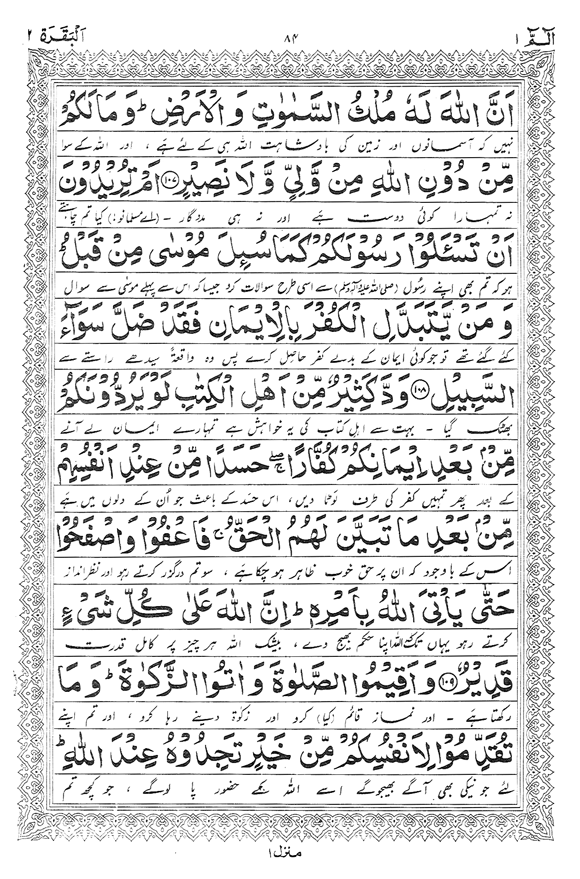 الٓمّٓ ١ ٨٤ اَلْبَقَرَة ٢
اَنَّ اللّٰهَ لَهٗ مُلْكُ السَّمٰوٰتِ وَ الْاَرْضِ ؕ وَ مَا لَكُمْ
نہیں کہ آسمانوں اور زمین کی بادشاہت اللہ ہی کے لئے ہے ، اور اللہ کے سوا
مِّنْ دُوْنِ اللّٰهِ مِنْ وَّلِیٍّ وَّ لَا نَصِیْرٍ ﴿۱۰۷﴾ اَمْ تُرِیْدُوْنَ
نہ تمہارا کوئی دوست ہے اور نہ ہی مددگار ۔ (اے مسلمانو!) کیا تم چاہتے
اَنْ تَسْـَٔلُوْا رَسُوْلَكُمْ كَمَا سُىِٕلَ مُوْسٰی مِنْ قَبْلُ ؕ
ہو کہ تم بھی اپنے رسُول (صلی اللہ علیہ وآلہ وسلم) سے اسی طرح سوالات کرو جیسا کہ اس سے پہلے موسٰی سے سوال
وَ مَنْ یَّتَبَدَّلِ الْكُفْرَ بِالْاِیْمَانِ فَقَدْ ضَلَّ سَوَآءَ
کئے گئے تھے تو جو کوئی ایمان کے بدلے کفر حاصل کرے پس وہ واقعۃً سیدھے راستے سے
السَّبِیْلِ ﴿۱۰۸﴾ وَدَّ كَثِیْرٌ مِّنْ اَهْلِ الْكِتٰبِ لَوْ یَرُدُّوْنَكُمْ
بھٹک گیا ۔ بہت سے اہلِ کتاب کی یہ خواہش ہے تمہارے ایمان لے آنے
مِّنْۢ بَعْدِ اِیْمَانِكُمْ كُفَّارًا ۖۚ حَسَدًا مِّنْ عِنْدِ اَنْفُسِهِمْ
کے بعد پھر تمہیں کفر کی طرف لوٹا دیں ، اس حسد کے باعث جو اُن کے دلوں میں ہے
مِّنْۢ بَعْدِ مَا تَبَیَّنَ لَهُمُ الْحَقُّ ۚ فَاعْفُوْا وَ اصْفَحُوْا
اس کے باوجود کہ ان پر حق خوب ظاہر ہو چکا ہے ، سو تم درگزر کرتے رہو اور نظرانداز
حَتّٰی یَاْتِیَ اللّٰهُ بِاَمْرِهٖ ؕ اِنَّ اللّٰهَ عَلٰی كُلِّ شَیْءٍ
کرتے رہو یہاں تک کہ اللہ اپنا حکم بھیج دے ، بیشک اللہ ہر چیز پر کامل قدرت
قَدِیْرٌ ﴿۱۰۹﴾ وَ اَقِیْمُوا الصَّلٰوةَ وَ اٰتُوا الزَّكٰوةَ ؕ وَ مَا
رکھتا ہے ۔ اور نماز قائم (کیا) کرو اور زکوٰۃ دیتے رہا کرو ، اور تم اپنے
تُقَدِّمُوْا لِاَنْفُسِكُمْ مِّنْ خَیْرٍ تَجِدُوْهُ عِنْدَ اللّٰهِ ؕ
لئے جو نیکی بھی آگے بھیجو گے اسے اللہ کے حضور پا لو گے ، جو کچھ تم
منزل ١